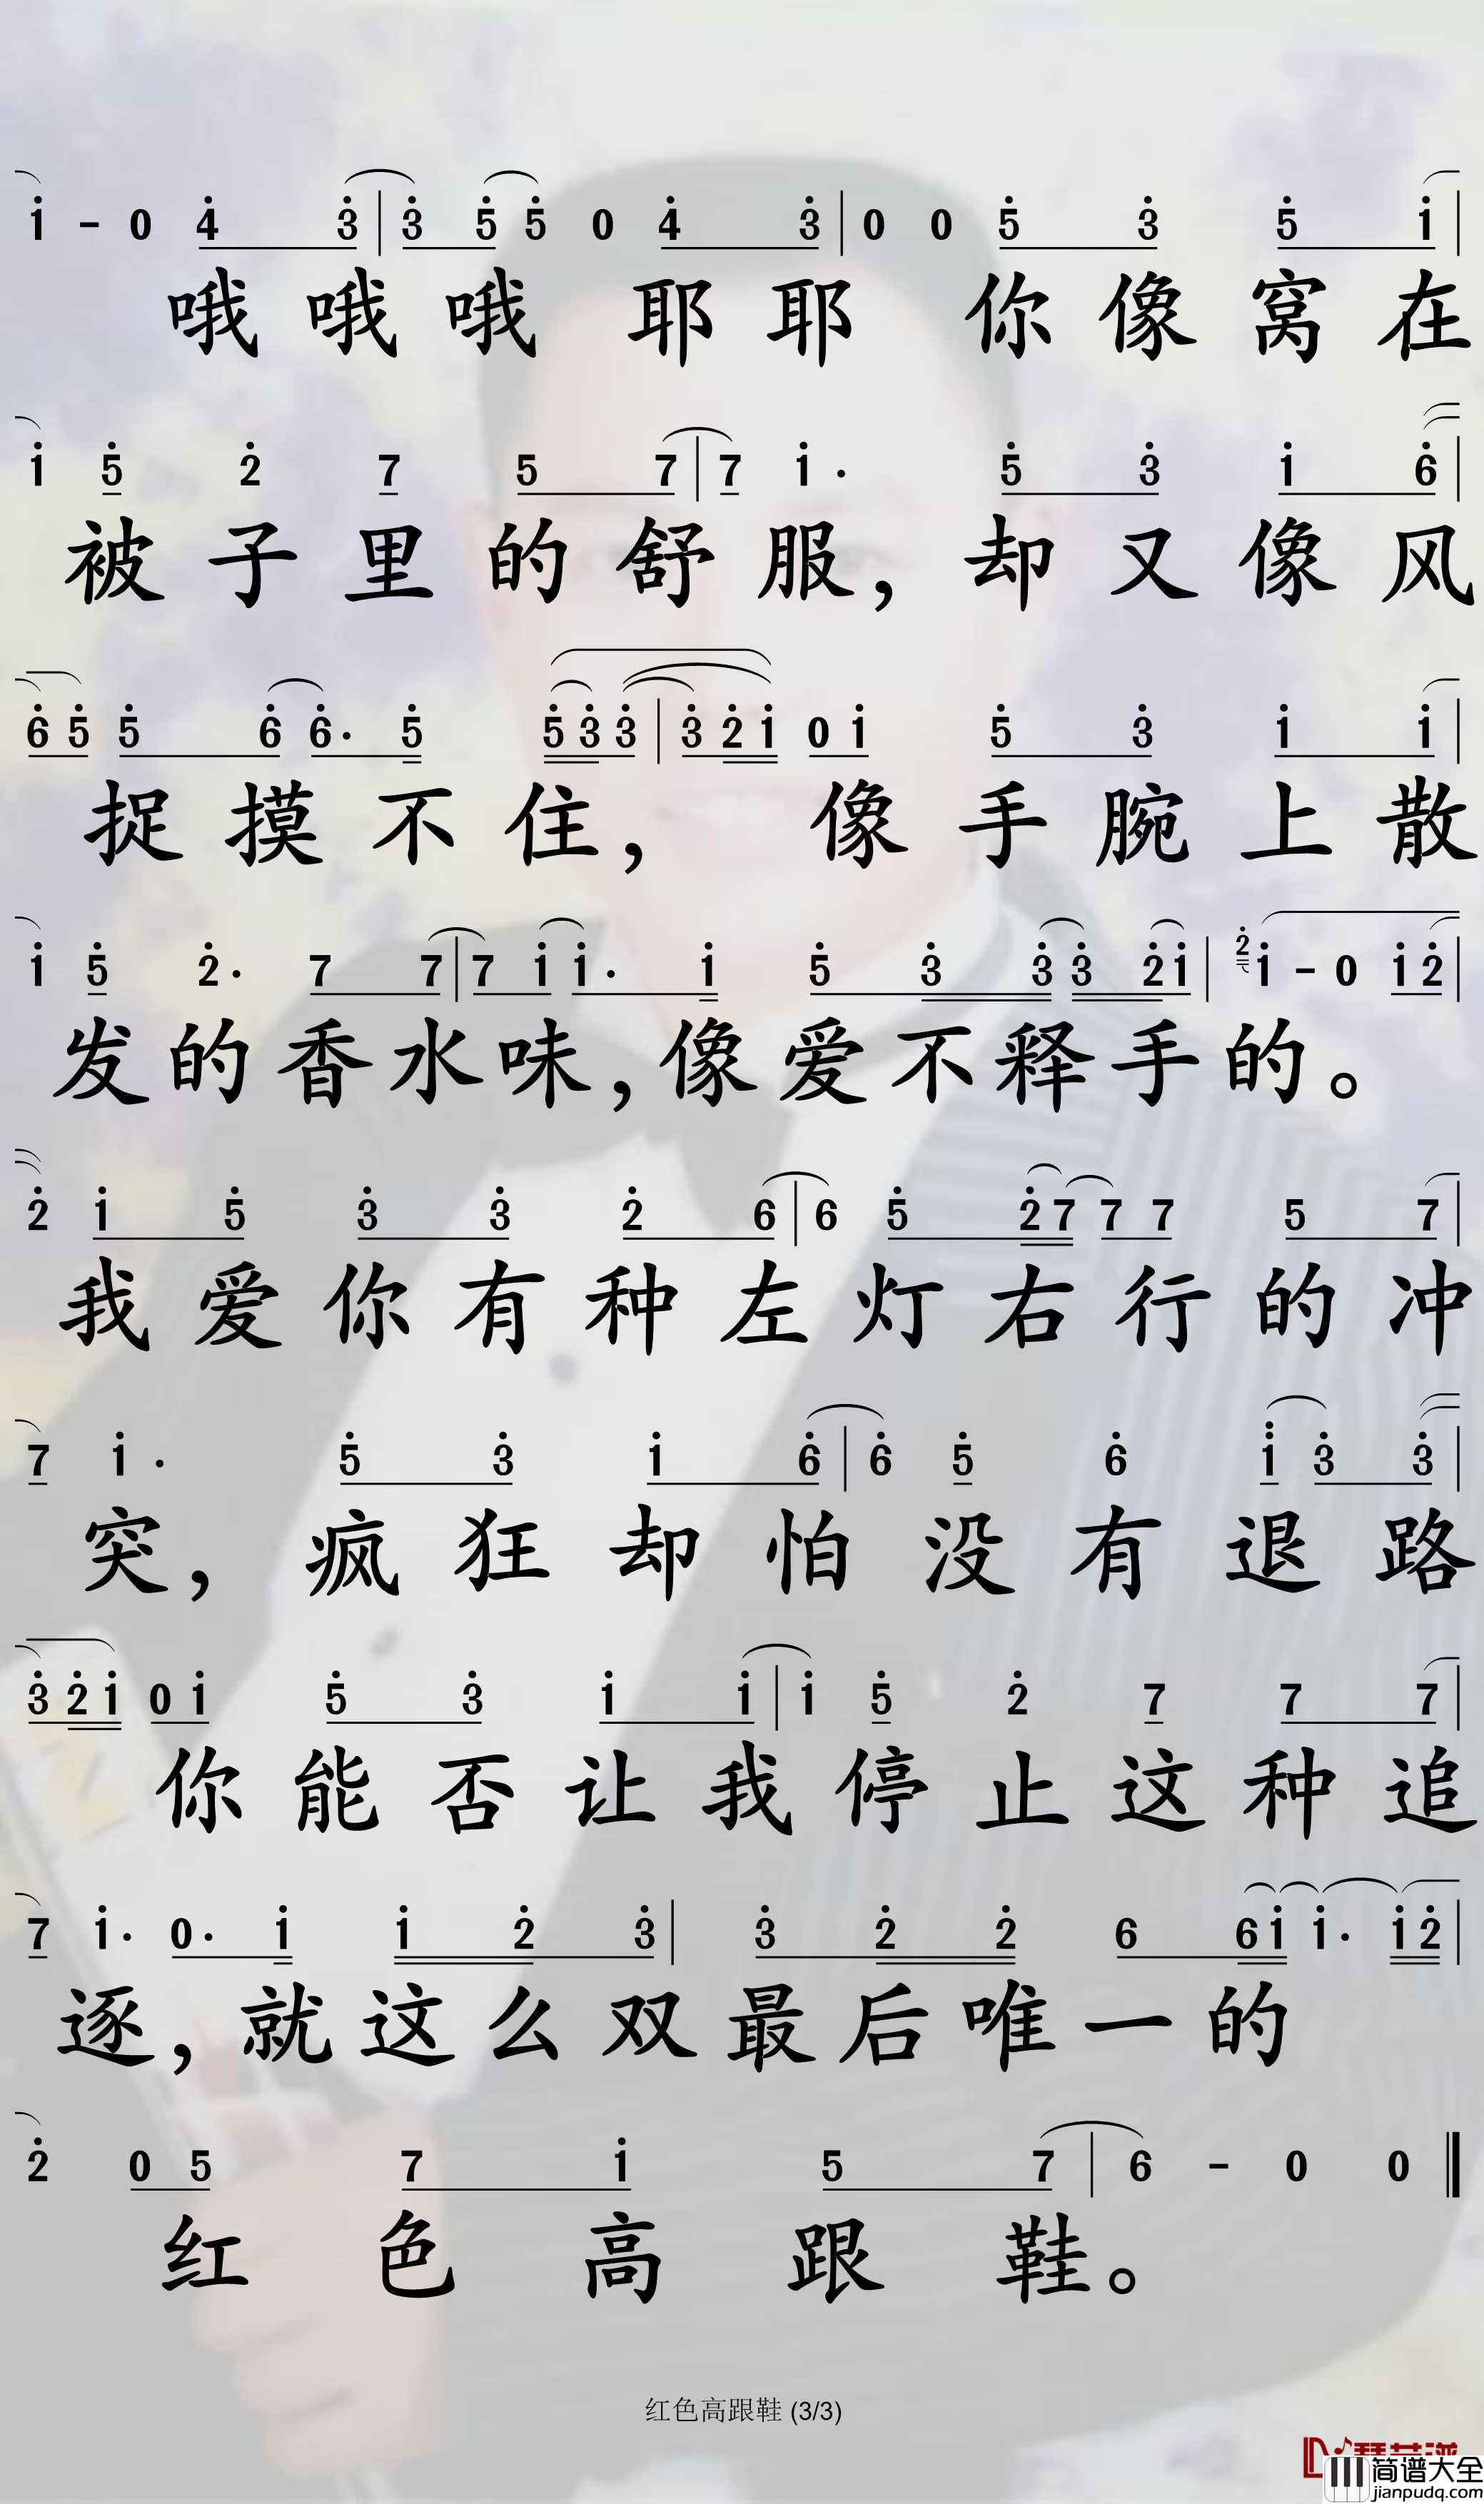 i - 0 4 3 | 3 5 5 0 4 3 | 0 0 5 3 5 i |
哦 哦 哦 耶 耶 你 像 窝 在
i 5 2 7 5 7 | 7 i · 5 3 i 6 |
被 子 里 的 舒 服, 却 又 像 风
6 5 5 6 6 · 5 5 3 3 | 3 2 i 0 i 5 3 i i |
捉 摸 不 住, 像 手 腕 上 散
i 5 2 · 7 7 | 7 i i · i 5 3 3 3 2 i | 2 i - 0 i 2 |
发 的 香 水 味, 像 爱 不 释 手 的。
2 i 5 3 3 2 6 | 6 5 2 7 7 7 5 7 |
我 爱 你 有 种 左 灯 右 行 的 冲
7 i · 5 3 i 6 | 6 5 6 i 3 3 |
突, 疯 狂 却 怕 没 有 退 路
3 2 i 0 i 5 3 i i | i 5 2 7 7 7 |
你 能 否 让 我 停 止 这 种 追
7 i · 0 · i i 2 3 | 3 2 2 6 6 i i · i 2 |
逐, 就 这 么 双 最 后 唯 一 的
2 0 5 7 i 5 7 | 6 - 0 0
红 色 高 跟 鞋。
红色高跟鞋 (3/3)
简谱大全
jianpudq.com